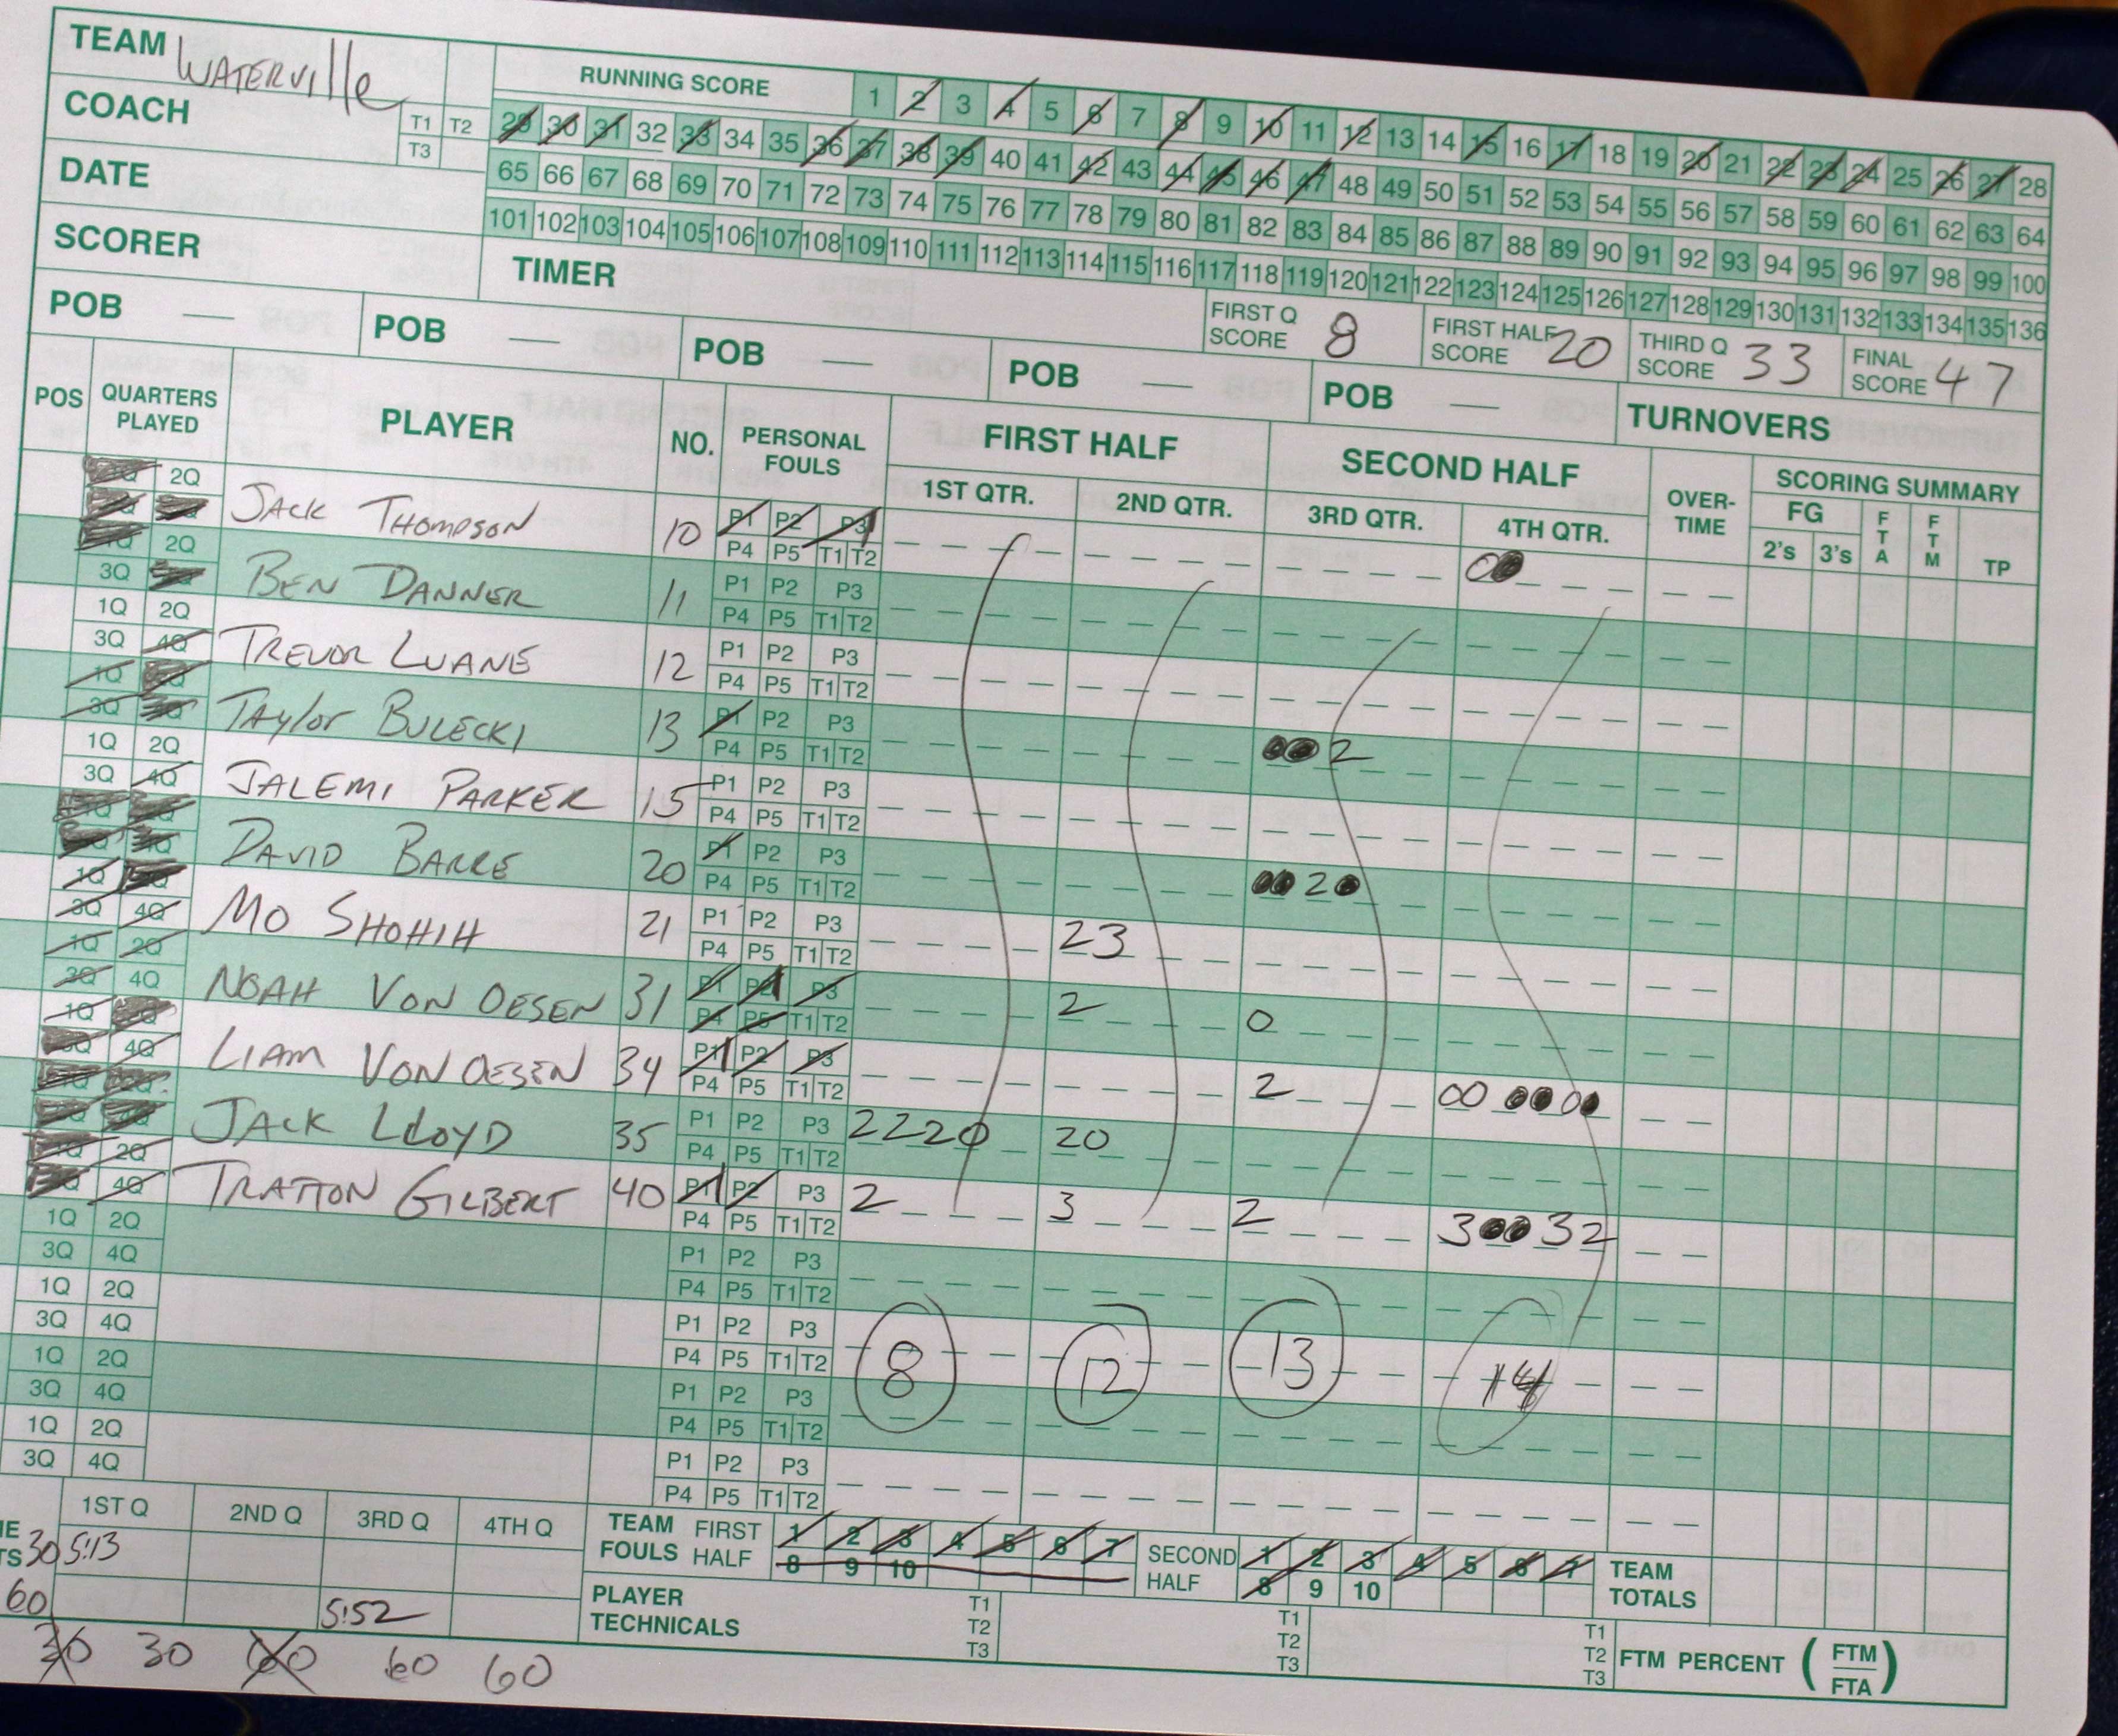 TEAM WATERVIlle
RUNNING SCORE 1 2 3 4 5 6 7 8 9 10 11 12 13 14 15 16 17 18 19 20 21 22 23 24 25 26 27 28
COACH T1 T2 29 30 31 32 33 34 35 36 37 38 39 40 41 42 43 44 45 46 47 48 49 50 51 52 53 54 55 56 57 58 59 60 61 62 63 64
T3
DATE 65 66 67 68 69 70 71 72 73 74 75 76 77 78 79 80 81 82 83 84 85 86 87 88 89 90 91 92 93 94 95 96 97 98 99 100
101 102 103 104 105 106 107 108 109 110 111 112 113 114 115 116 117 118 119 120 121 122 123 124 125 126 127 128 129 130 131 132 133 134 135 136
SCORER TIMER
FIRST Q SCORE 8 FIRST HALF SCORE 20 THIRD Q SCORE 33 FINAL SCORE 47
POB POB POB POB POB TURNOVERS
POS QUARTERS PLAYED PLAYER NO. PERSONAL FOULS FIRST HALF SECOND HALF OVER-TIME SCORING SUMMARY
1ST QTR. 2ND QTR. 3RD QTR. 4TH QTR. FG 2's 3's FTA FTM TP
2Q JACK THOMPSON 10 P1 P2 P3
P4 P5 T1 T2
2Q BEN DANNER 11 P1 P2 P3
3Q P4 P5 T1 T2
1Q 2Q TREVOR LUANE 12 P1 P2 P3
3Q 4Q P4 P5 T1 T2
1Q TAylor BULECKI 13 P1 P2 P3
3Q P4 P5 T1 T2 2
1Q 2Q JALEMI PARKER 15 P1 P2 P3
3Q 4Q P4 P5 T1 T2
DAVID BARRE 20 P1 P2 P3
P4 P5 T1 T2 2
1Q MO SHOHIH 21 P1 P2 P3 2 3
3Q 4Q P4 P5 T1 T2
1Q 2Q NOAH VON OESEN 31 P1 P2 P3 2 0
3Q 4Q P4 P5 T1 T2
1Q LIAM VON OESEN 34 P1 P2 P3 2
4Q P4 P5 T1 T2
JACK LLOYD 35 P1 P2 P3 2 2 2 0 2 0
P4 P5 T1 T2
2Q TRATTON GILBERT 40 P1 P2 P3 2 3 2 3 3 2
4Q P4 P5 T1 T2
1Q 2Q P1 P2 P3
3Q 4Q P4 P5 T1 T2
1Q 2Q P1 P2 P3
3Q 4Q P4 P5 T1 T2 8 12 13 14
1Q 2Q P1 P2 P3
3Q 4Q P4 P5 T1 T2
1Q 2Q P1 P2 P3
3Q 4Q P4 P5 T1 T2
1ST Q 2ND Q 3RD Q 4TH Q
TEAM FOULS FIRST HALF 1 2 3 4 5 6 7
8 9 10
SECOND HALF 1 2 3 4 5 6 7
8 9 10
TEAM TOTALS
30 5:13
60 5:52
PLAYER TECHNICALS T1 T2 T3 T1 T2 T3 T1 T2 T3
FTM PERCENT ( FTM FTA )
30 30 60 60 60